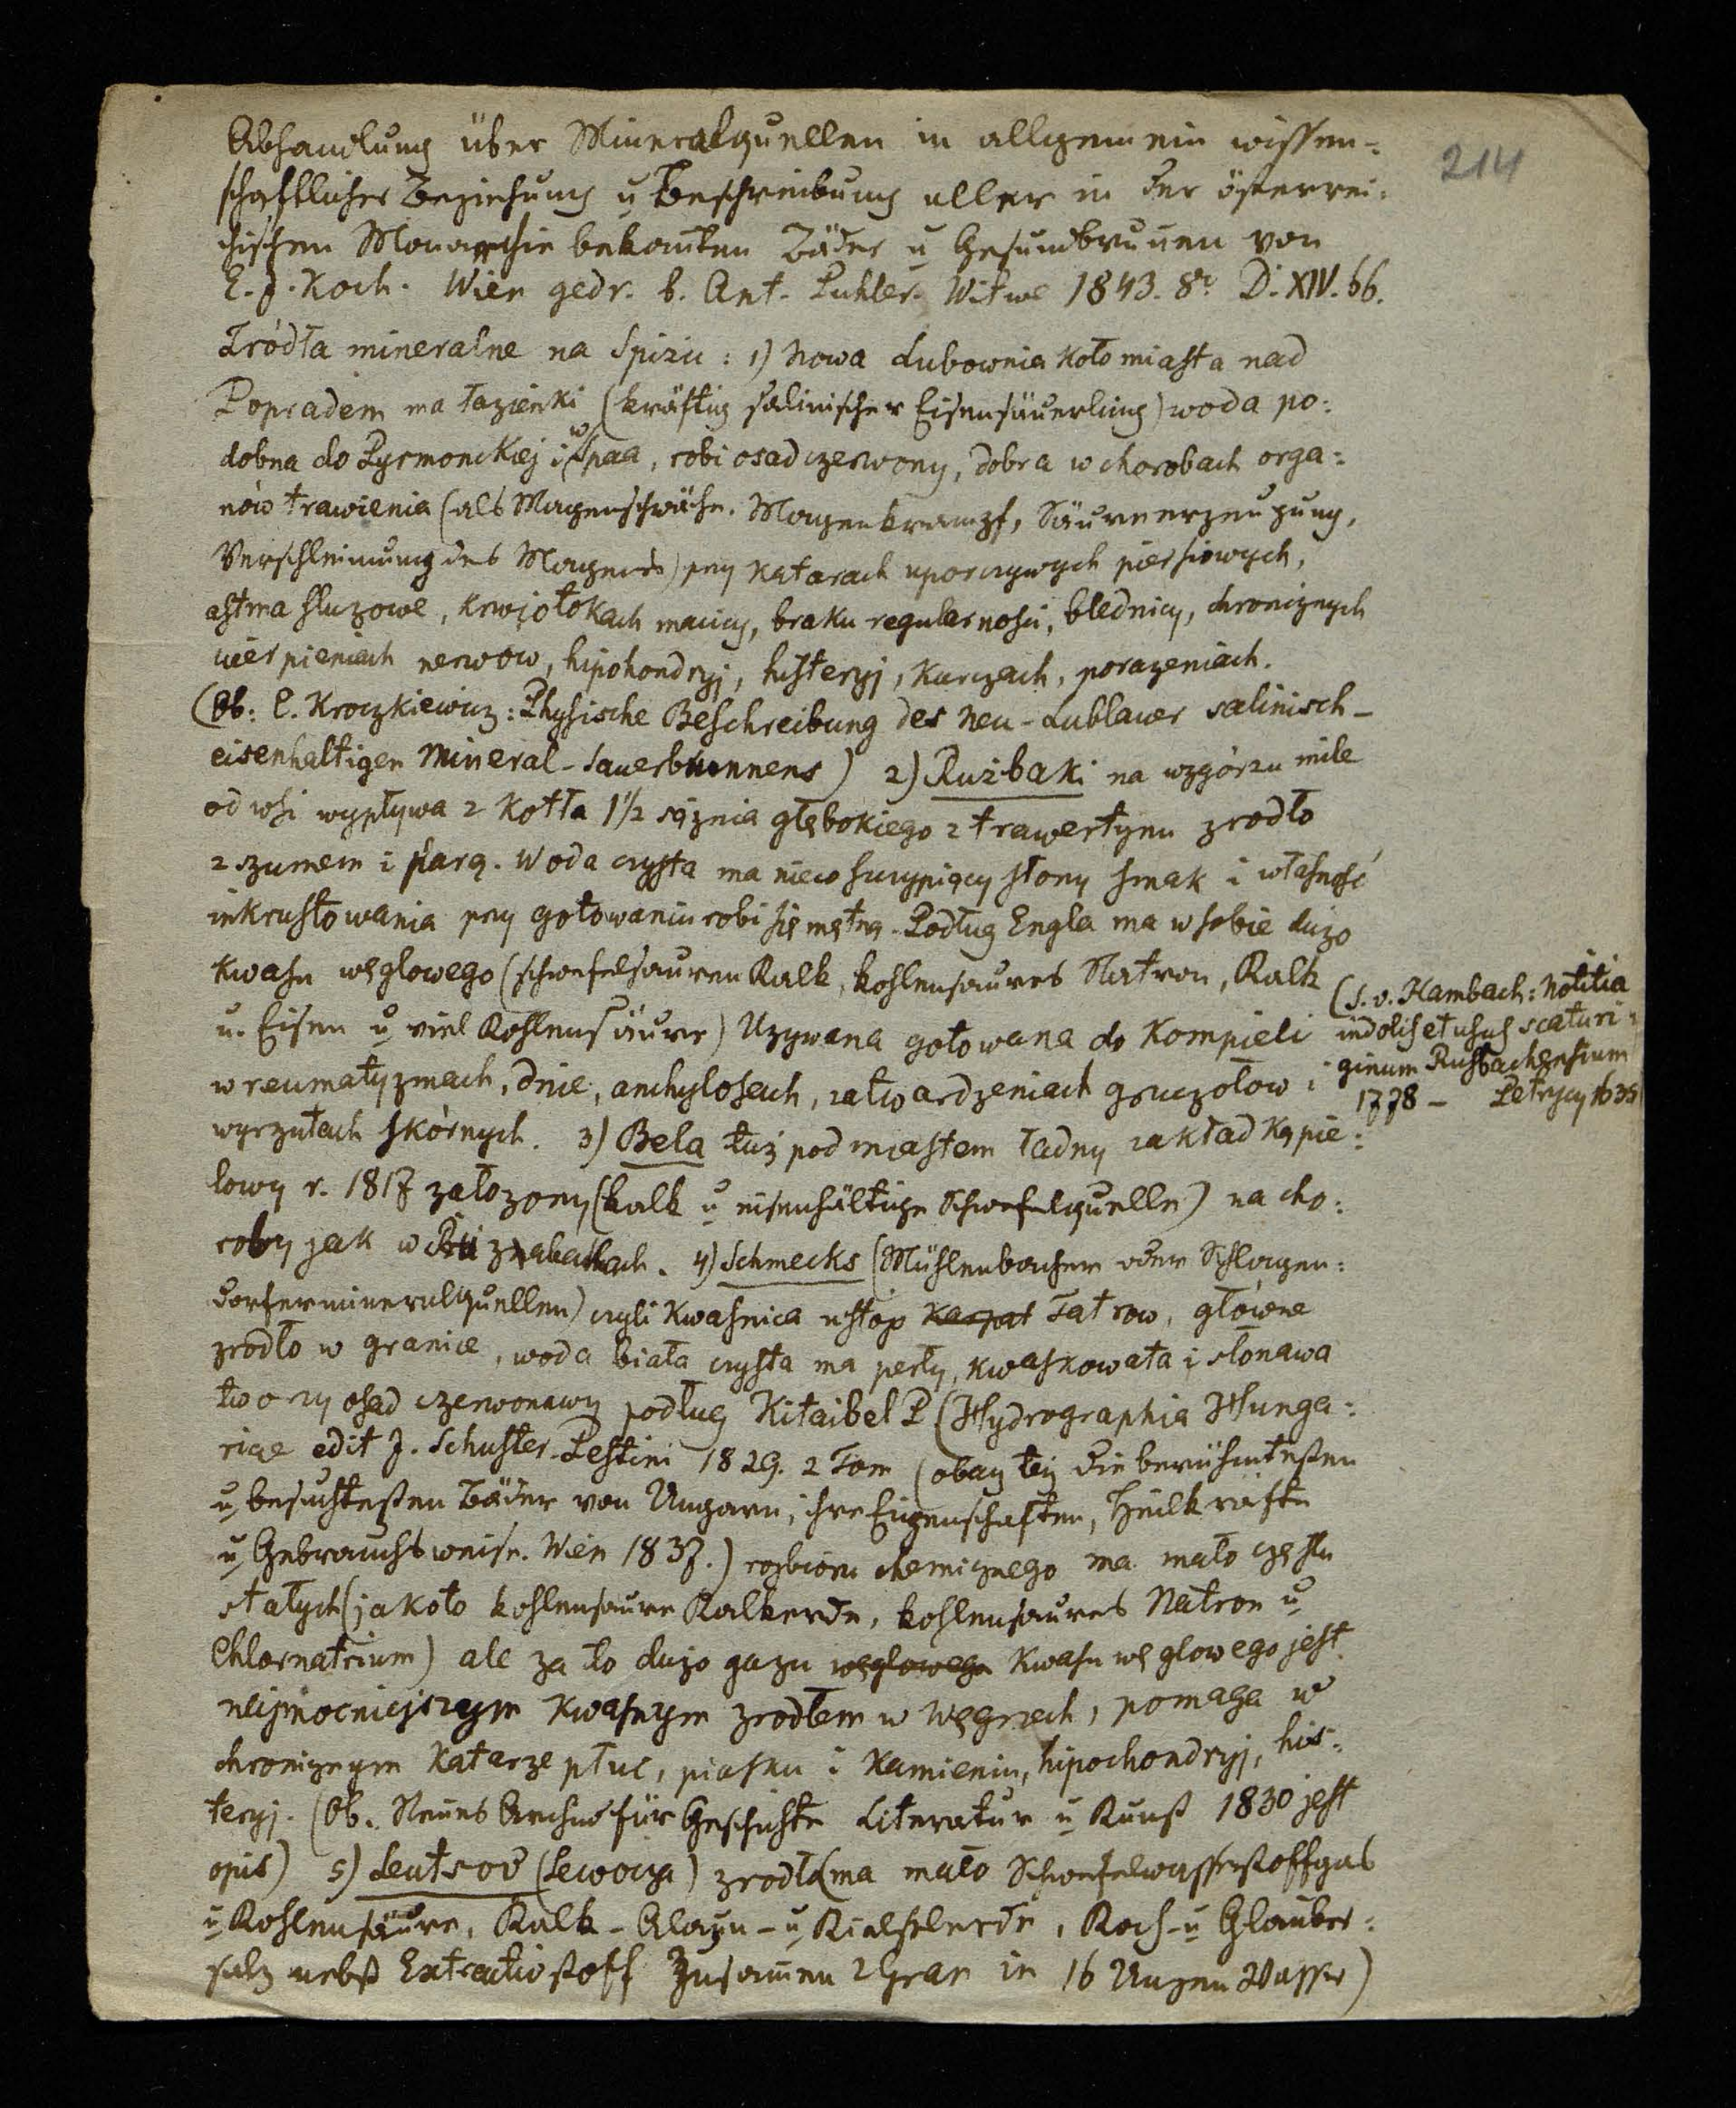 214
Abhandlung über Mineralquellen in allgemein wissen=
schaftlicher Beziehung u Beschreibung aller in der österrei=
chischen Monarchie bekannten Bäder u Gesundbrunnen von
E. J. Koch. Wien gedr. b. Ant. Pichler. Witwe 1843. 8º D. XIV. 66.
Źródła mineralne na Spizu: 1) Nowa Lubownia koło miasta nad
Popradem ma łazienki (kräftig salinischer Eisensäuerling) woda po=
dobna do Pyrmonckiej i w Spaa, robi osad czerwony, dobra w chorobach orga=
nów trawienia (als Magenschwäche. Magenkrampf, Säureerzeugung,
Verschleimung des Magens) przy katarach uporczywych piersiowych,
astma sluzowe, krwiotokach macicy, braku regularności, blednicy, chronicznych
cierpieniach nerwow, hipohondryj, histeryj, kurczach, porazeniach.
(Ob: C. Kroczkiewicz: Physische Beschreibung des Neu-Lublauer salinisch-
eisenhaltigen Mineral-Sauerbrunnens) 2) Rużbaki na wzgórzu mile
od wsi wypływa z kotła 1½ sążnia głębokiego z trawertynu zrodło
z szumem i parą. Woda czysta ma nieco szczypiący słony smak i własność
inkrustowania przy gotowaniu robi się mętna. Podług Engla ma w sobie dużo
kwasu węglowego (schwefelsauren Kalk, kohlensaures Natron, Kalk
u. Eisen u viel Kohlensäure) Uzywana gotowana do kompieli
w reumatyzmach, dnie, anchylosach, zatwardzeniach gruczołow i
wyrzutach skórnych. 3) Bela tuż pod miastem ładny zakład kąpie=
(S. v. Hambach: Notitia
indolis et usus scaturi=
ginum Rusbachensium
1778 - Petrycy 1635
lowy r. 1817 założony (kalk u eisenhältige Schwefelquelle) na cho=
roby jak w Rużbachach. 4) Schmecks (Mühlenbacher oder Schlagen=
dorfermineralquellen) czyli Kwasnica u stóp Karpat Tatrow, główne
zrodło w granice, woda biała czysta ma perły, kwaskowata i słonawa
tworzy osad czerwonawy podług Kitaibel P (Hydrographia Hunga=
riae edit J. Schuster. Pestini 1829. 2 Tom (obacz też die berühmtesten
u besuchtesten Bäder von Ungarn, ihre Eigenschaften, Heilkräfte
u Gebrauchsweise. Wien 1837.) rozbioru chemicznego ma mało części
stałych (jakoto kohlensaure Kalkerde, kohlensaures Natron u
Chlornatrium) ale za to dużo gazu węglowego kwasu węglowego jest
nejmocniejszym kwasnym zrodłem w Węgrzech, pomaga w
chronicznym katarze płuc, piasku i kamieniu, hipochondryj, his=
teryj. (Ob. Neues Archiv für Geschichte Literatur u Kunst 1830 jest
opis) 5) Leutsov (Lewocza) zrodło (ma mało Schwefelwasserstoffgas
u Kohlensäure, Kalk- Alaun- u Kieselerde, Koch- u Glauber=
salz nebst Extractivstoff Zusammen 2 Gran in 16 Unzen Wasser)